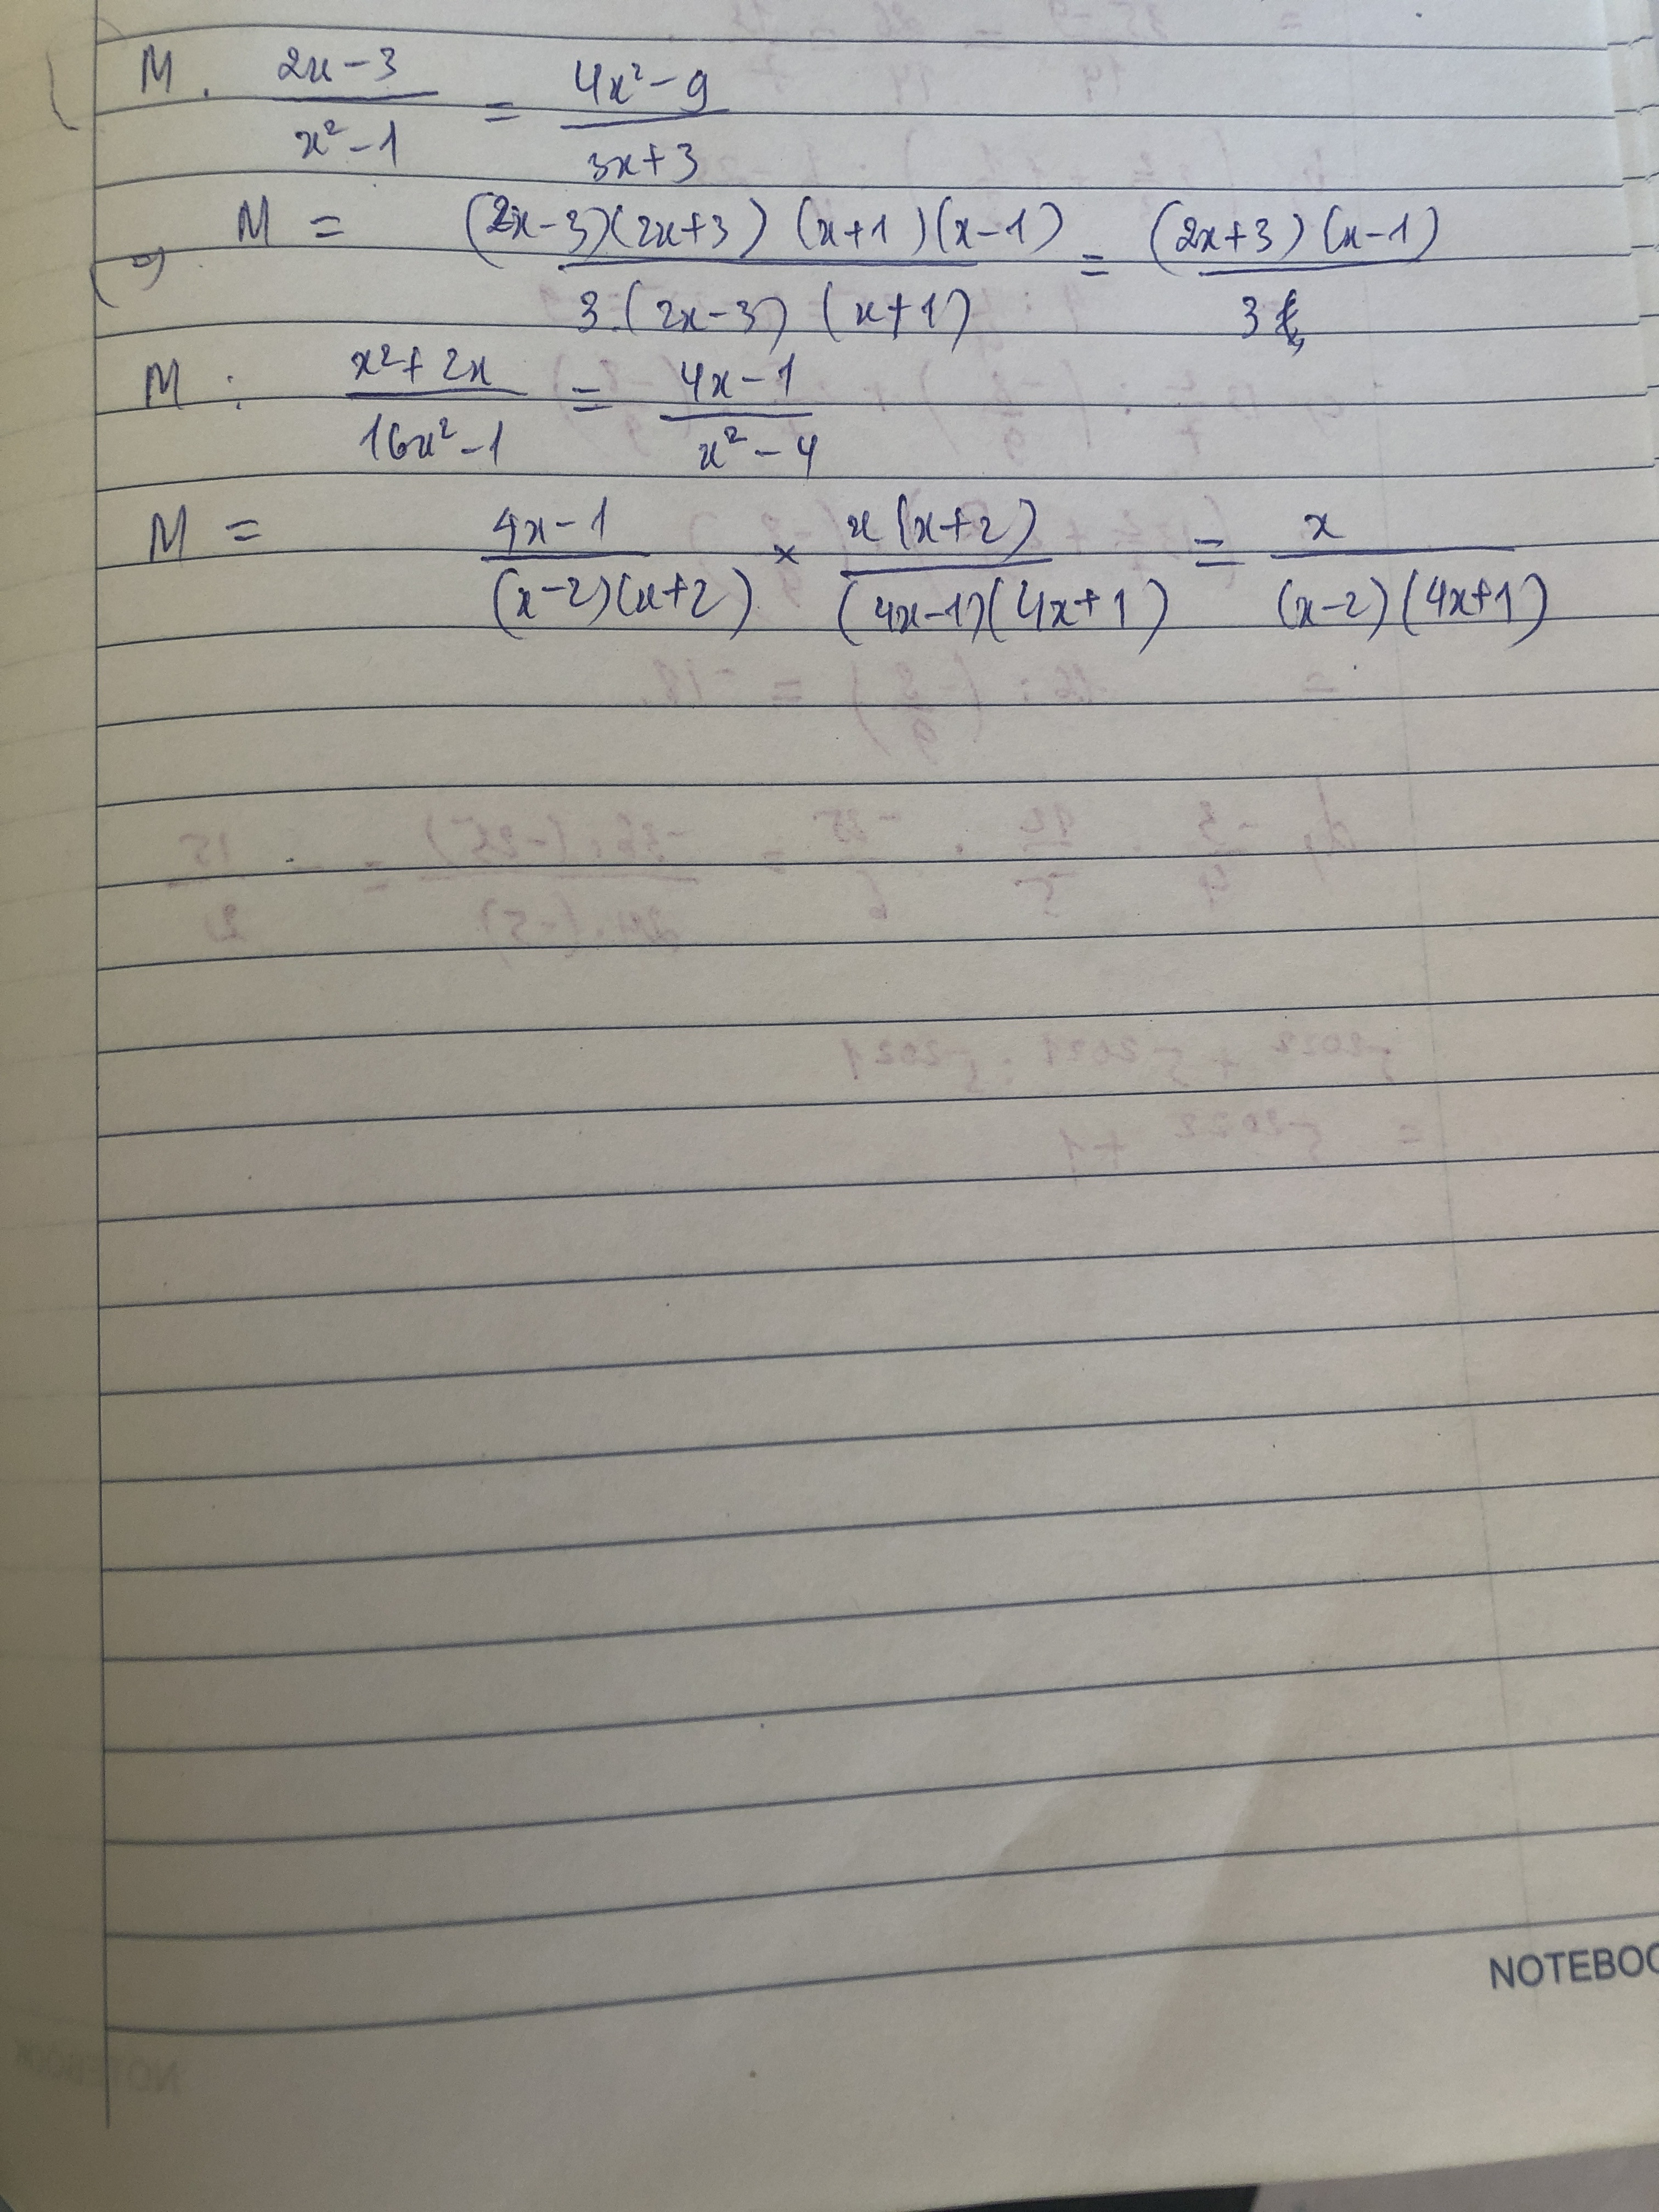 M . (2x-3)/(x²-1) = (4x²-9)/(3x+3)
M = ((2x-3)(2x+3) (x+1)(x-1))/(3.(2x-3) (x+1)) = ((2x+3)(x-1))/3
M : (x²+2x)/(16x²-1) = (4x-1)/(x²-4)
M = (4x-1)/((x-2)(x+2)) × (x(x+2))/((4x-1)(4x+1)) = x/((x-2)(4x+1))
NOTEBOO